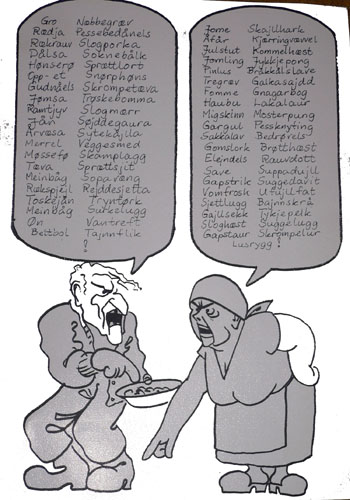 Gro Nabbegrav
Rødja Pessebedånels
Rakrauv Slogporka
Dålsa Soknebålk
Hønserø Sprættlort
Opp-et Snørphøns
Gudnåels Skrompetæva
Jømsa Trøskebomma
Ramtjuv Slogmørr
Fån Søjddegaura
Arvøsa Sytekajlla
Merrel Veggesmed
Møssefø Skåmplagg
Tæva Sprættsjit
Meinbåg Sopavæng
Rukspjell Rejddesjetta
Toskejån Tryntørk
Meinbåg Surkelugg
Øn Vantreft
Beltbol Tajnnflik
?
Jome Skajllhark
Afår Kjærringvæmel
Julstut Kommelhæst
Jomling Jykkjeporg
Pinlus Brækkålslave
Tregrøv Galkasajdd
Fomme Gnagarbog
Haubu Lakalaur
Migsklnn Mosterpung
Gargul Pesskyfting
Sakkalav Bedrøvels
Gomslork Brøtthæst
Elejndels Rauvdott
Save Suppadujll
Gapstrik Suggedavit
Vomtrosk Ufujllfat
Sjettlugg Bajnnskrå
Gajllsekk Tykjepelk
Sloghæst Suggelugg
Gapstaur Skrompelur
Lusrygg !